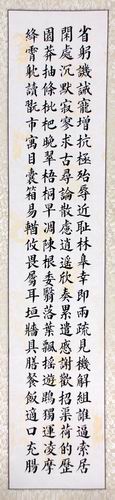 省躬譏誡寵增抗極殆辱近耻林皋幸即兩疏見機解組誰逼索居
閑處沉默寂寥求古尋論散慮逍遙欣奏累遣慼謝歡招渠荷的歷
園莽抽條枇杷晚翠梧桐早凋陳根委翳落葉飄搖遊鵾獨運凌摩
絳霄躭讀翫市寓目囊箱易輶攸畏屬耳垣牆具膳餐飯適口充腸